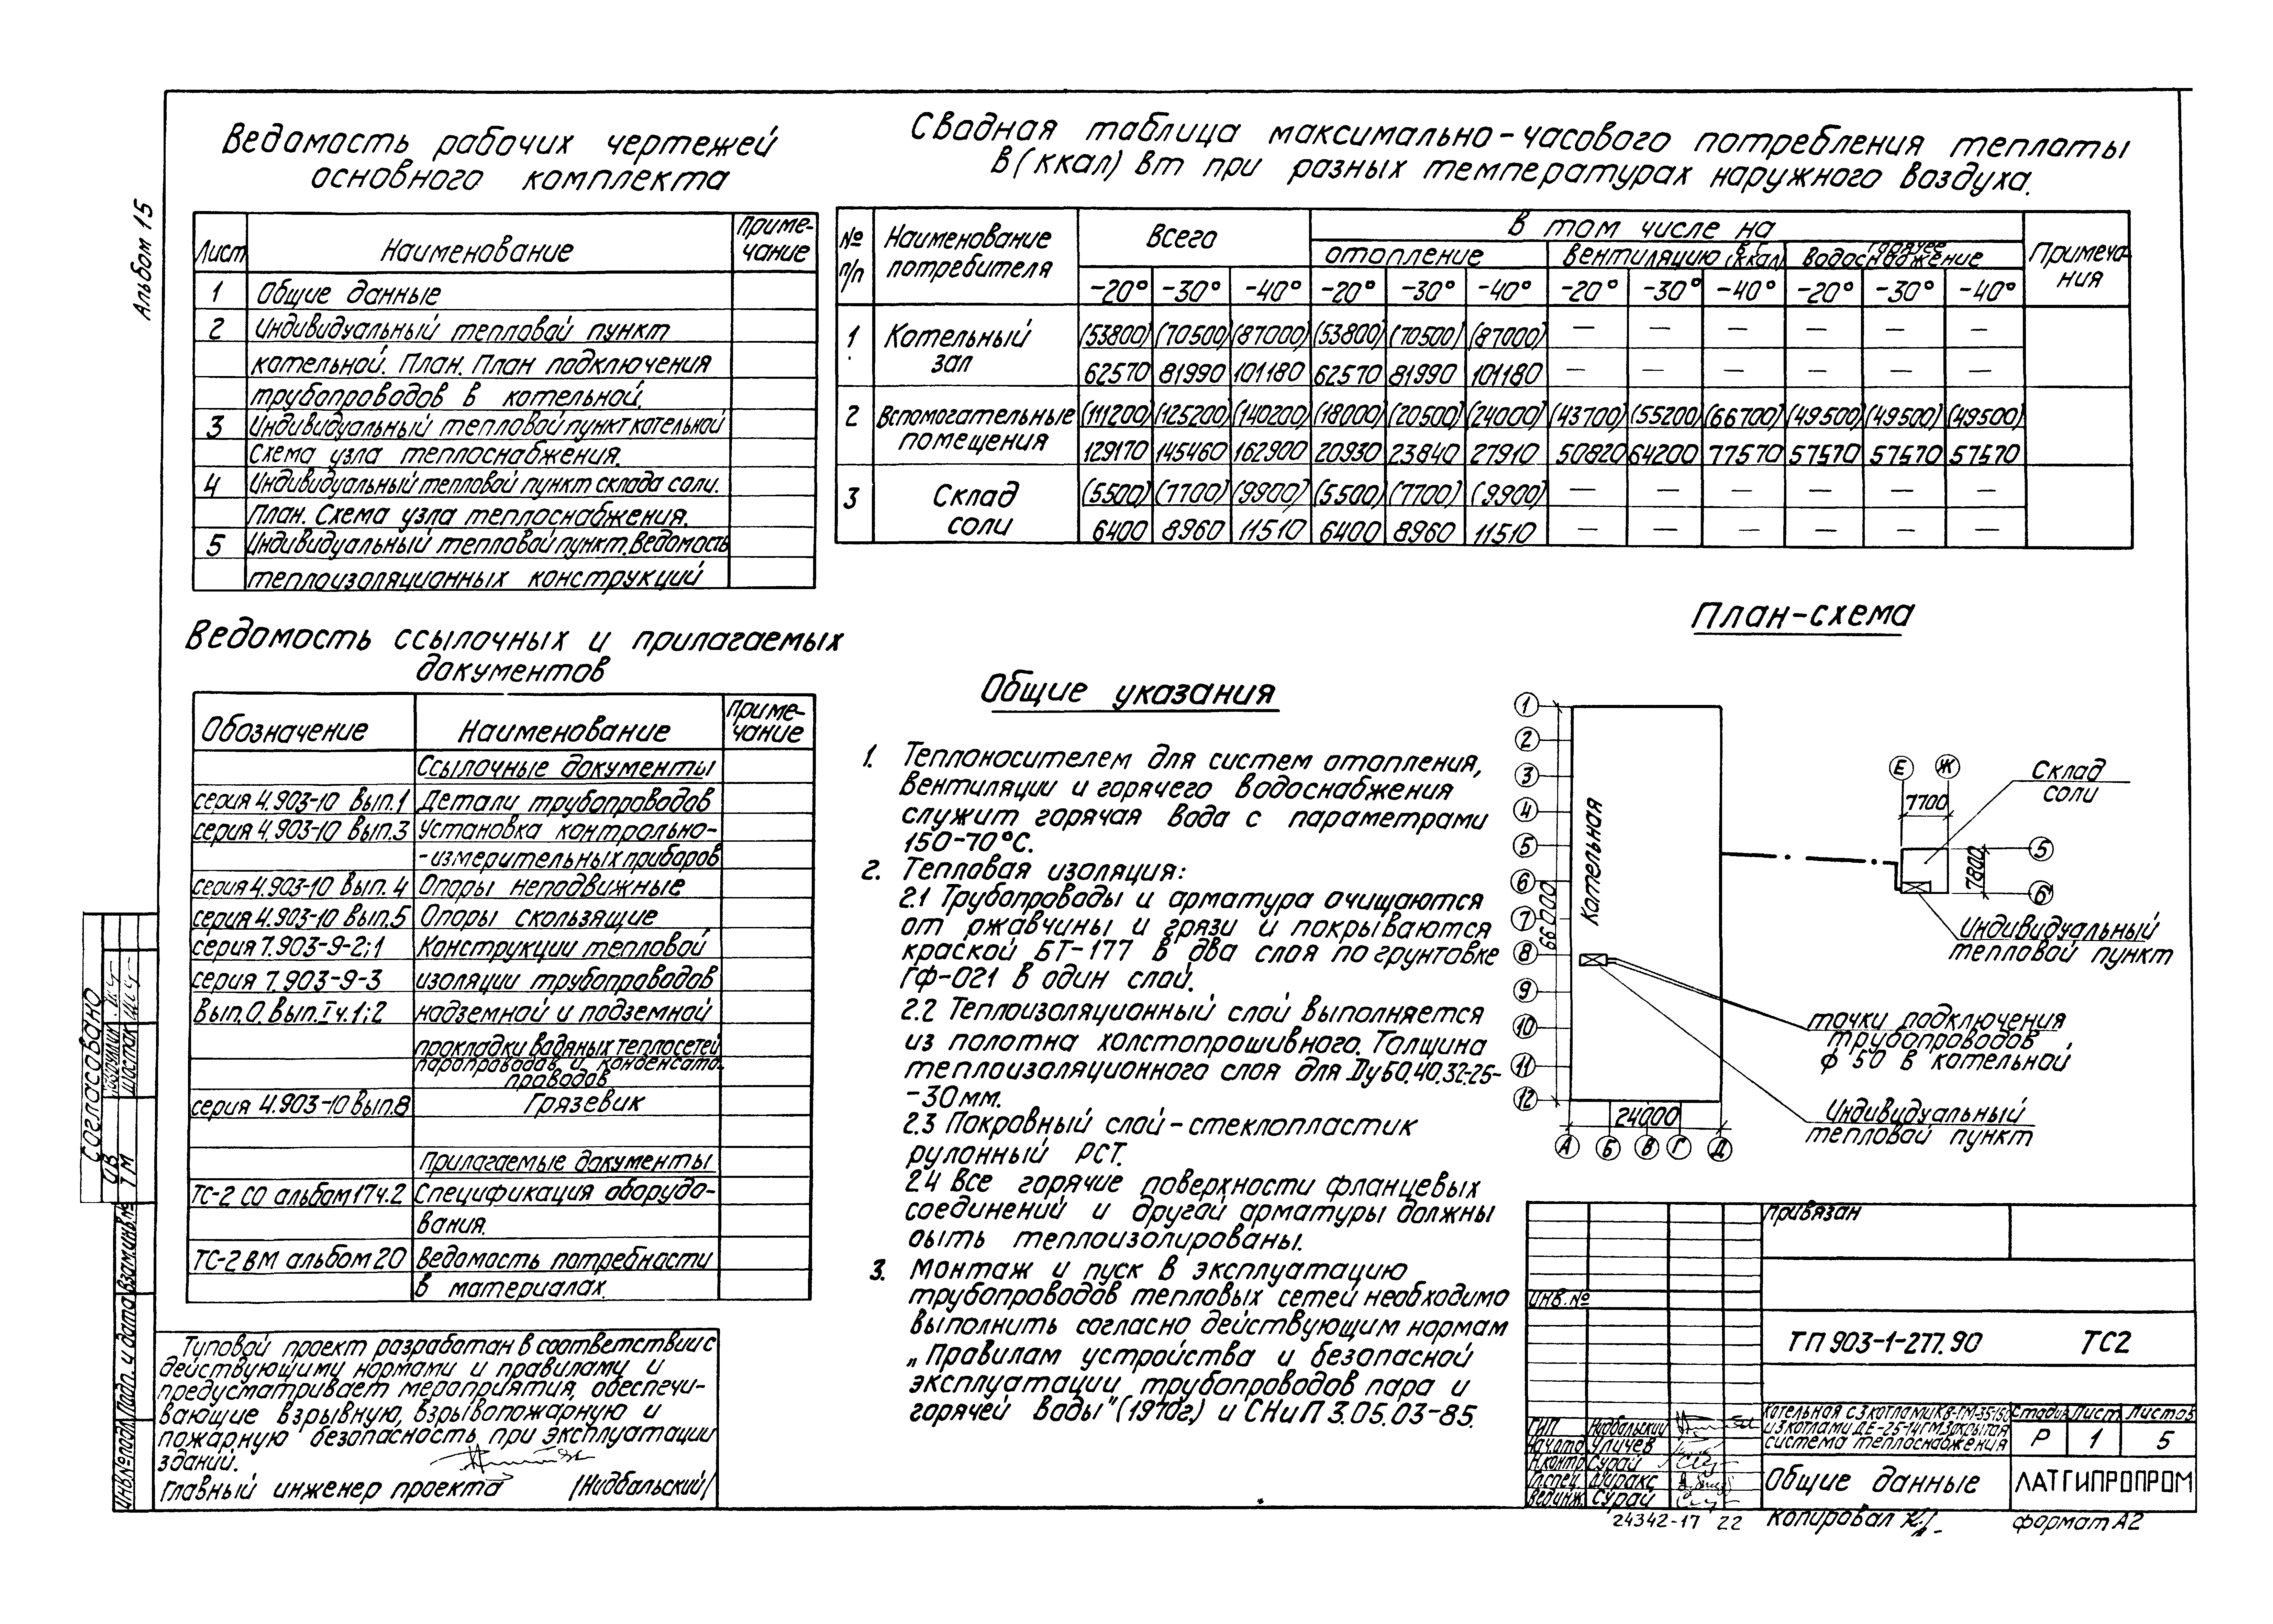 Альбом 15
Ведомость рабочих чертежей
основного комплекта
Лист Наименование Приме-
чание
1 Общие данные
2 Индивидуальный тепловой пункт
котельной. План. План подключения
трубопроводов в котельной.
3 Индивидуальный тепловой пункт котельной
Схема узла теплоснабжения.
4 Индивидуальный тепловой пункт склада соли.
План. Схема узла теплоснабжения.
5 Индивидуальный тепловой пункт. Ведомость
теплоизоляционных конструкций
Сводная таблица максимально-часового потребления теплоты
в (ккал) Вт при разных температурах наружного воздуха.
№ п/п Наименование потребителя Всего В том числе на Примеча-
ния
отопление вентиляцию горячее водоснабжение
-20° -30° -40° -20° -30° -40° -20° -30° -40° -20° -30° -40°
1 Котельный (53800) (70500) (87000) (53800) (70500) (87000) — — — — — —
зал 62570 81990 101180 62570 81990 101180 — — — — — —
2 Вспомогательные (111200) (125200) (140200) (18000) (20500) (24000) (43700) (55200) (66700) (49500) (49500) (49500)
помещения 129170 145460 162900 20930 23840 27910 50820 64200 77570 57570 57570 57570
3 Склад (5500) (7700) (9900) (5500) (7700) (9900) — — — — — —
соли 6400 8960 11510 6400 8960 11510 — — — — — —
Ведомость ссылочных и прилагаемых
документов
Обозначение Наименование Приме-
чание
Ссылочные документы
серия 4.903-10 вып.1 Детали трубопроводов
серия 4.903-10 вып.3 Установка контрольно-
-измерительных приборов
серия 4.903-10 вып.4 Опоры неподвижные
серия 4.903-10 вып.5 Опоры скользящие
серия 7.903-9-2;1 Конструкции тепловой
серия 7.903-9-3 изоляции трубопроводов
Вып.0. Вып.I ч.1;2 надземной и подземной
прокладки водяных теплосетей
паропроводов и конденсато-
проводов
серия 4.903-10 вып.8 Грязевик
Прилагаемые документы
ТС-2 СО альбом 17 ч.2 Спецификация оборудо-
вания.
ТС-2 ВМ альбом 20 Ведомость потребности
в материалах.
Типовой проект разработан в соответствии с
действующими нормами и правилами и
предусматривает мероприятия, обеспечи-
вающие взрывную, взрывопожарную и
пожарную безопасность при эксплуатации
зданий.
Главный инженер проекта /Нидбальский/
Общие указания
1. Теплоносителем для систем отопления,
вентиляции и горячего водоснабжения
служит горячая вода с параметрами
150-70°С.
2. Тепловая изоляция:
2.1 Трубопроводы и арматура очищаются
от ржавчины и грязи и покрываются
краской БТ-177 в два слоя по грунтовке
ГФ-021 в один слой.
2.2 Теплоизоляционный слой выполняется
из полотна холстопрошивного. Толщина
теплоизоляционного слоя для Ду50,40,32,25-
-30мм.
2.3 Покровный слой-стеклопластик
рулонный РСТ.
2.4 Все горячие поверхности фланцевых
соединений и другой арматуры должны
быть теплоизолированы.
3. Монтаж и пуск в эксплуатацию
трубопроводов тепловых сетей необходимо
выполнить согласно действующим нормам
„Правилам устройства и безопасной
эксплуатации трубопроводов пара и
горячей воды" (1970г.) и СНиП 3.05.03-85.
План-схема
1
2
3
4
5
6
7
8
9
10
11
12
66000
Котельная
24000
А Б В Г Д
Е Ж
7700
Склад
соли
5
7800
6
Индивидуальный
тепловой пункт
точки подключения
трубопроводов
ф 50 в котельной
Индивидуальный
тепловой пункт
Привязан
ИНВ.№
ТП 903-1-277.90 ТС2
Котельная с 3 котлами КВ-ГМ-35-150
и 3 котлами ДЕ-25-14ГМ. Закрытая
система теплоснабжения
Стадия Лист Листов
Р 1 5
ГИП Нидбальский
Нач.отд Уличев
Н.контр Сурай
Гл.спец
Вед.инж. Сурай
Общие данные
ЛАТГИПРОПРОМ
24342-17 22 Копировал формат А2
Согласовано
ОВ
ТМ Шостак
Инв.№подл. Подп. и дата Взам.инв.№